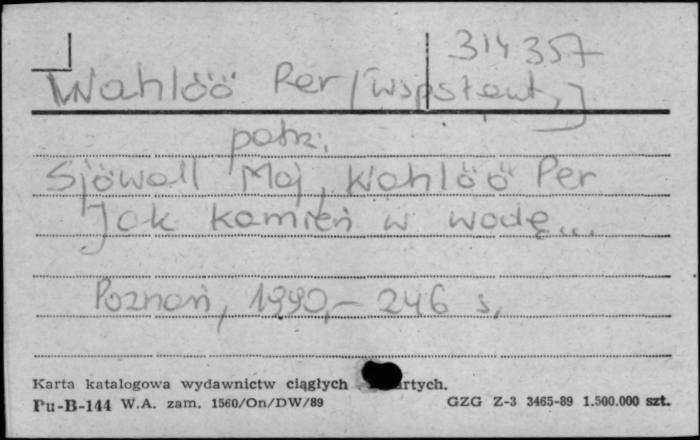 314357
Wahlöö Per [współaut.]
patrz:
Sjöwall Maj, Wahlöö Per
Jak kamień w wodę...
Poznań, 1990,- 246 s.
Karta katalogowa wydawnictw ciągłych
Pu-B-144 W.A. zam. 1560/On/DW/89 GZG Z-3 3465-89 1.500.000 szt.